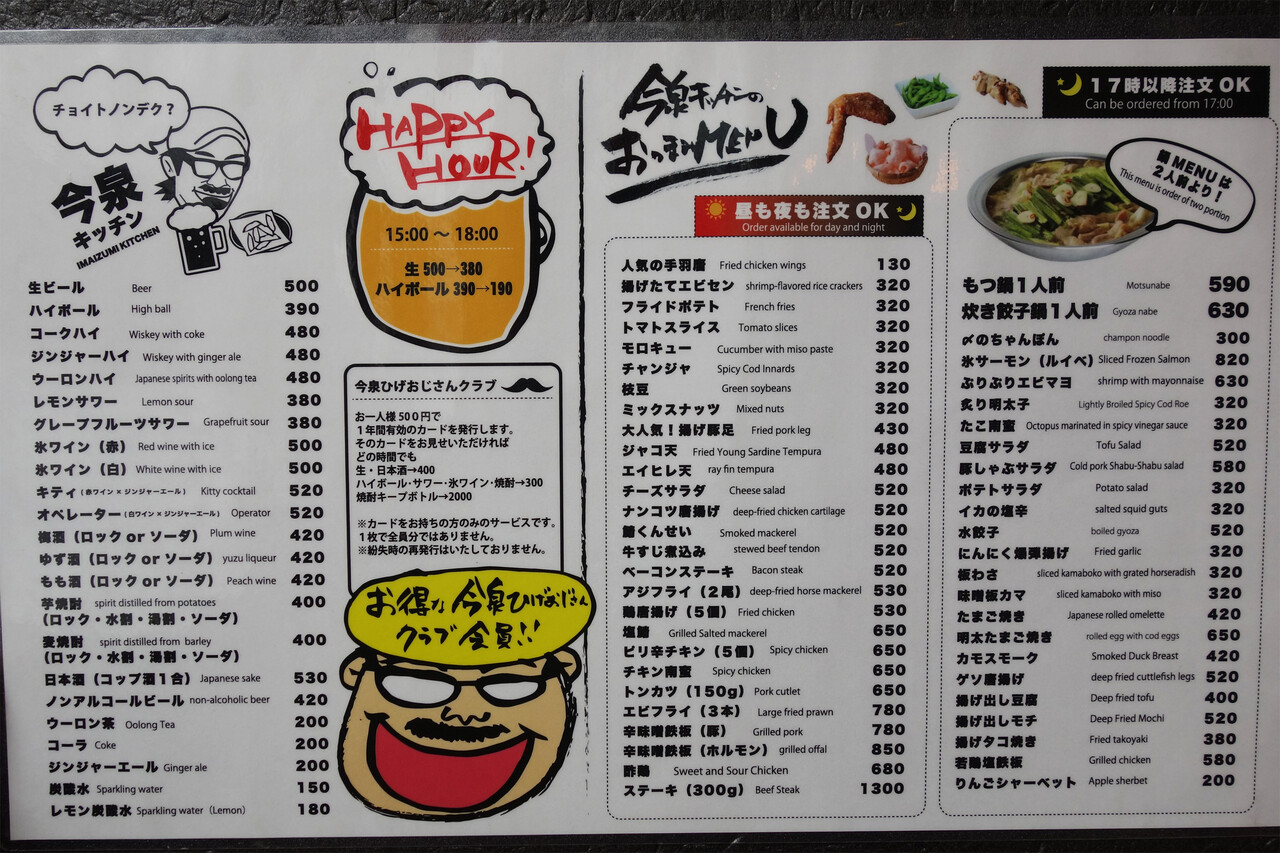 チョイトノンデク？
今泉
キッチン
IMAIZUMI KITCHEN
生ビール Beer 500
ハイボール High ball 390
コークハイ Wiskey with coke 480
ジンジャーハイ Wiskey with ginger ale 480
ウーロンハイ Japanese spirits with oolong tea 480
レモンサワー Lemon sour 380
グレープフルーツサワー Grapefruit sour 380
氷ワイン（赤） Red wine with ice 500
氷ワイン（白） White wine with ice 500
キティ（赤ワイン×ジンジャーエール） Kitty cocktail 520
オペレーター（白ワイン×ジンジャーエール） Operator 520
梅酒（ロック or ソーダ） Plum wine 420
ゆず酒（ロック or ソーダ） yuzu liqueur 420
もも酒（ロック or ソーダ） Peach wine 420
芋焼酎 spirit distilled from potatoes 400
（ロック・水割・湯割・ソーダ）
麦焼酎 spirit distilled from barley 400
（ロック・水割・湯割・ソーダ）
日本酒（コップ酒１合） Japanese sake 530
ノンアルコールビール non-alcoholic beer 420
ウーロン茶 Oolong Tea 200
コーラ Coke 200
ジンジャーエール Ginger ale 200
炭酸水 Sparkling water 150
レモン炭酸水 Sparkling water（Lemon） 180
HAPPY
HOUR!
15:00 〜 18:00
生 500→380
ハイボール 390→190
今泉ひげおじさんクラブ
お一人様５００円で
１年間有効のカードを発行します。
そのカードをお見せいただければ
どの時間でも
生・日本酒→400
ハイボール・サワー・氷ワイン・焼酎→300
焼酎キープボトル→2000
※カードをお持ちの方のみのサービスです。
１枚で全員分ではありません。
※紛失時の再発行はいたしておりません。
お得な今泉ひげおじさん
クラブ会員!!
今泉キッチンの
おつまみMENU
昼も夜も注文 OK
Order available for day and night
人気の手羽唐 Fried chicken wings 130
揚げたてエビセン shrimp-flavored rice crackers 320
フライドポテト French fries 320
トマトスライス Tomato slices 320
モロキュー Cucumber with miso paste 320
チャンジャ Spicy Cod Innards 320
枝豆 Green soybeans 320
ミックスナッツ Mixed nuts 320
大人気！揚げ豚足 Fried pork leg 430
ジャコ天 Fried Young Sardine Tempura 480
エイヒレ天 ray fin tempura 480
チーズサラダ Cheese salad 520
ナンコツ唐揚げ deep-fried chicken cartilage 520
鯖くんせい Smoked mackerel 520
牛すじ煮込み stewed beef tendon 520
ベーコンステーキ Bacon steak 520
アジフライ（２尾） deep-fried horse mackerel 530
鶏唐揚げ（５個） Fried chicken 530
塩鯖 Grilled Salted mackerel 650
ピリ辛チキン（５個） Spicy chicken 650
チキン南蛮 Spicy chicken 650
トンカツ（150g） Pork cutlet 650
エビフライ（３本） Large fried prawn 780
辛味噌鉄板（豚） Grilled pork 780
辛味噌鉄板（ホルモン） grilled offal 850
酢鶏 Sweet and Sour Chicken 680
ステーキ（300g） Beef Steak 1300
１７時以降注文 OK
Can be ordered from 17:00
鍋 MENU は
２人前より！
This menu is order of two portion
もつ鍋１人前 Motsunabe 590
炊き餃子鍋１人前 Gyoza nabe 630
〆のちゃんぽん champon noodle 300
氷サーモン（ルイベ） Sliced Frozen Salmon 820
ぷりぷりエビマヨ shrimp with mayonnaise 630
炙り明太子 Lightly Broiled Spicy Cod Roe 320
たこ南蛮 Octopus marinated in spicy vinegar sauce 320
豆腐サラダ Tofu Salad 520
豚しゃぶサラダ Cold pork Shabu-Shabu salad 580
ポテトサラダ Potato salad 320
イカの塩辛 salted squid guts 320
水餃子 boiled gyoza 520
にんにく爆弾揚げ Fried garlic 320
板わさ sliced kamaboko with grated horseradish 320
味噌板カマ sliced kamaboko with miso 320
たまご焼き Japanese rolled omelette 420
明太たまご焼き rolled egg with cod eggs 650
カモスモーク Smoked Duck Breast 420
ゲソ唐揚げ deep fried cuttlefish legs 520
揚げ出し豆腐 Deep fried tofu 400
揚げ出しモチ Deep Fried Mochi 520
揚げタコ焼き Fried takoyaki 380
若鶏塩鉄板 Grilled chicken 580
りんごシャーベット Apple sherbet 200